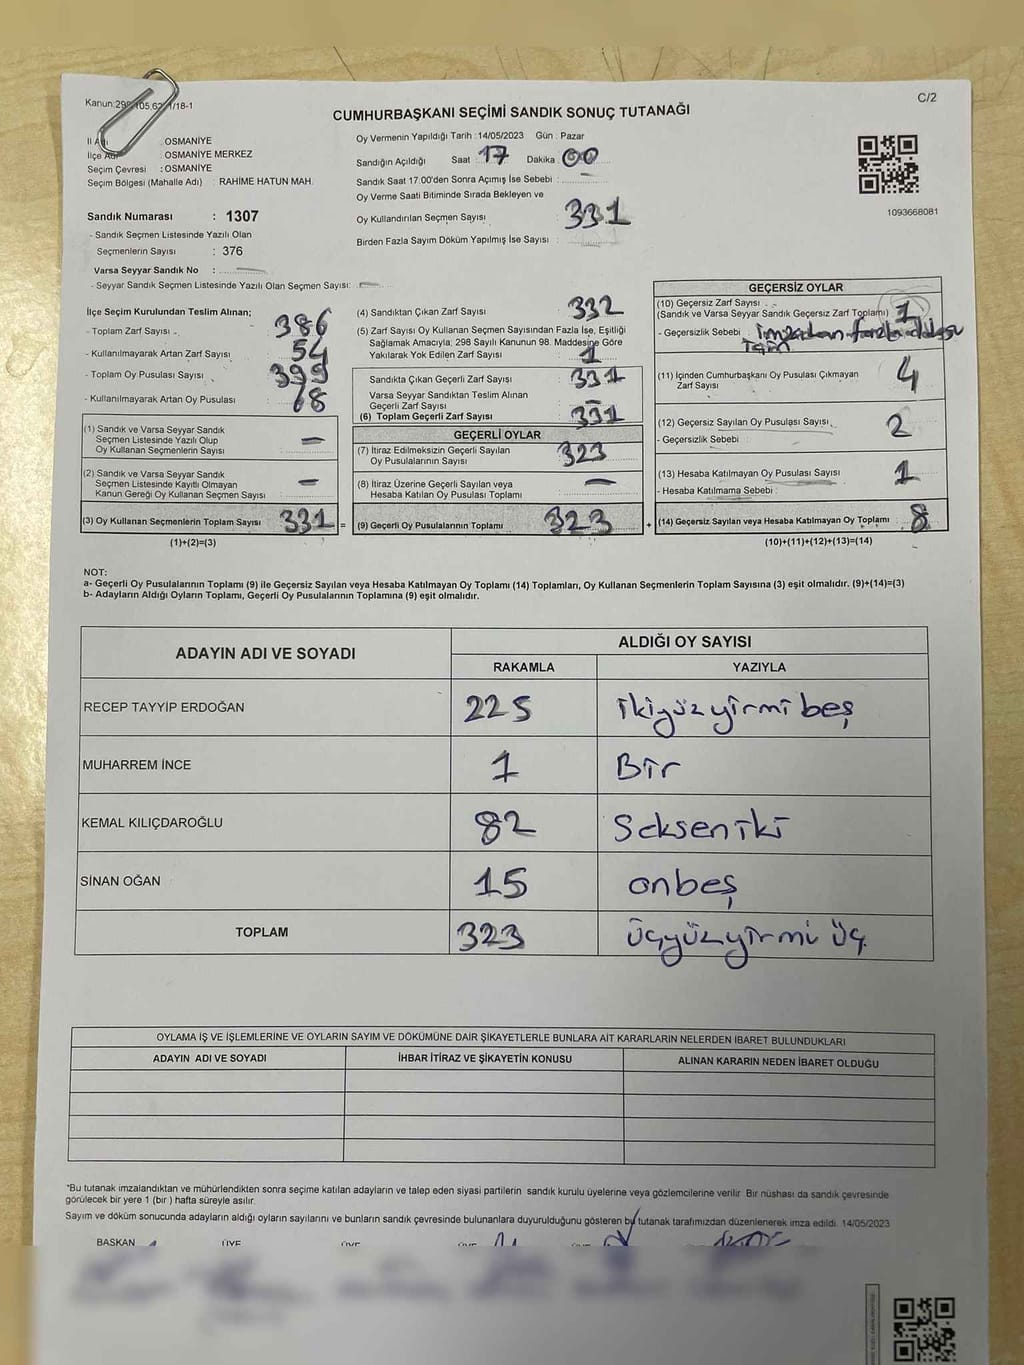 Kanun:298,105,62 1/18-1
C/2
CUMHURBAŞKANI SEÇİMİ SANDIK SONUÇ TUTANAĞI
İl Adı : OSMANİYE
İlçe Adı : OSMANİYE MERKEZ
Seçim Çevresi : OSMANİYE
Seçim Bölgesi (Mahalle Adı) : RAHİME HATUN MAH.
Oy Vermenin Yapıldığı Tarih : 14/05/2023 Gün : Pazar
Sandığın Açıldığı Saat : 17 Dakika : 00
Sandık Saat 17:00'den Sonra Açımış İse Sebebi :
Oy Verme Saati Bitiminde Sırada Bekleyen ve
Oy Kullandırılan Seçmen Sayısı : 331
Birden Fazla Sayım Döküm Yapılmış İse Sayısı :
1093668081
Sandık Numarası : 1307
- Sandık Seçmen Listesinde Yazılı Olan
Seçmenlerin Sayısı : 376
Varsa Seyyar Sandık No : —
- Seyyar Sandık Seçmen Listesinde Yazılı Olan Seçmen Sayısı: —
İlçe Seçim Kurulundan Teslim Alınan;
- Toplam Zarf Sayısı 386
- Kullanılmayarak Artan Zarf Sayısı 54
- Toplam Oy Pusulası Sayısı 399
- Kullanılmayarak Artan Oy Pusulası 68
(1) Sandık ve Varsa Seyyar Sandık
Seçmen Listesinde Yazılı Olup
Oy Kullanan Seçmenlerin Sayısı —
(2) Sandık ve Varsa Seyyar Sandık
Seçmen Listesinde Kayıtlı Olmayan
Kanun Gereği Oy Kullanan Seçmen Sayısı —
(3) Oy Kullanan Seçmenlerin Toplam Sayısı 331 =
(1)+(2)=(3)
(4) Sandıktan Çıkan Zarf Sayısı 332
(5) Zarf Sayısı Oy Kullanan Seçmen Sayısından Fazla İse, Eşitliği
Sağlamak Amacıyla, 298 Sayılı Kanunun 98. Maddesine Göre
Yakılarak Yok Edilen Zarf Sayısı 1
Sandıkta Çıkan Geçerli Zarf Sayısı 331
Varsa Seyyar Sandıktan Teslim Alınan
Geçerli Zarf Sayısı
(6) Toplam Geçerli Zarf Sayısı 331
GEÇERLİ OYLAR
(7) İtiraz Edilmeksizin Geçerli Sayılan
Oy Pusulalarının Sayısı 323
(8) İtiraz Üzerine Geçerli Sayılan veya
Hesaba Katılan Oy Pusulası Toplamı —
(9) Geçerli Oy Pusulalarının Toplamı 323 +
GEÇERSİZ OYLAR
(10) Geçersiz Zarf Sayısı
(Sandık ve Varsa Seyyar Sandık Geçersiz Zarf Toplamı) 1
- Geçersizlik Sebebi : imzadan fazla olduğu
için
(11) İçinden Cumhurbaşkanı Oy Pusulası Çıkmayan
Zarf Sayısı 4
(12) Geçersiz Sayılan Oy Pusulası Sayısı 2
- Geçersizlik Sebebi :
(13) Hesaba Katılmayan Oy Pusulası Sayısı 1
- Hesaba Katılmama Sebebi :
(14) Geçersiz Sayılan veya Hesaba Katılmayan Oy Toplamı 8
(10)+(11)+(12)+(13)=(14)
NOT:
a- Geçerli Oy Pusulalarının Toplamı (9) ile Geçersiz Sayılan veya Hesaba Katılmayan Oy Toplamı (14) Toplamları, Oy Kullanan Seçmenlerin Toplam Sayısına (3) eşit olmalıdır. (9)+(14)=(3)
b- Adayların Aldığı Oyların Toplamı, Geçerli Oy Pusulalarının Toplamına (9) eşit olmalıdır.
ADAYIN ADI VE SOYADI
ALDIĞI OY SAYISI
RAKAMLA YAZIYLA
RECEP TAYYİP ERDOĞAN 225 ikiyüzyirmi beş
MUHARREM İNCE 1 Bir
KEMAL KILIÇDAROĞLU 82 Sekseniki
SİNAN OĞAN 15 onbeş
TOPLAM 323 üçyüzyirmi üç
OYLAMA İŞ VE İŞLEMLERİNE VE OYLARIN SAYIM VE DÖKÜMÜNE DAİR ŞİKAYETLERLE BUNLARA AİT KARARLARIN NELERDEN İBARET BULUNDUKLARI
ADAYIN ADI VE SOYADI İHBAR İTİRAZ VE ŞİKAYETİN KONUSU ALINAN KARARIN NEDEN İBARET OLDUĞU
*Bu tutanak imzalandıktan ve mühürlendikten sonra seçime katılan adayların ve talep eden siyasi partilerin sandık kurulu üyelerine veya gözlemcilerine verilir. Bir nüshası da sandık çevresinde
görülecek bir yere 1 (bir ) hafta süreyle asılır.
Sayım ve döküm sonucunda adayların aldığı oyların sayılarını ve bunların sandık çevresinde bulunanlara duyurulduğunu gösteren bu tutanak tarafımızdan düzenlenerek imza edildi. 14/05/2023
BAŞKAN ÜYE ÜYE